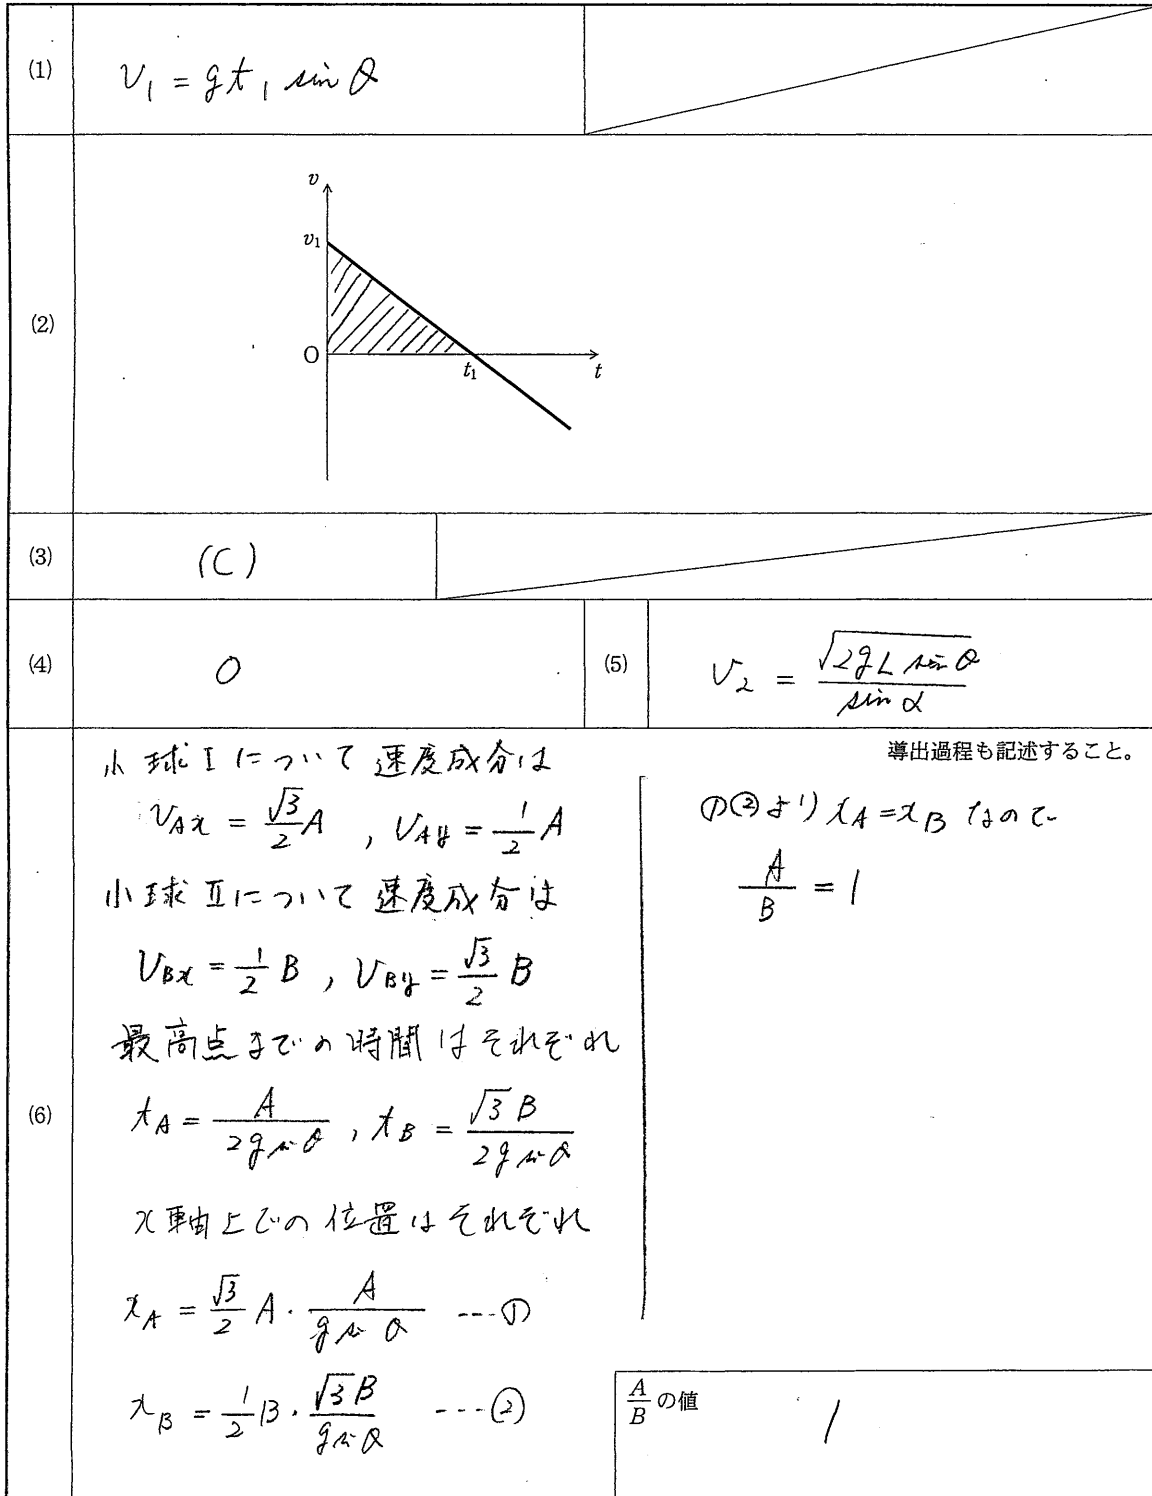 (1)
v₁ = gt₁ sin θ
(2)
v
v₁
O
t₁
t
(3)
(C)
(4)
0
(5)
v₂ = √(2gL sin θ) / sin α
(6)
導出過程も記述すること。
小球Ⅰについて速度成分は
v_Ax = (√3/2)A , v_Ay = (1/2)A
小球Ⅱについて速度成分は
v_Bx = (1/2)B , v_By = (√3/2)B
最高点までの時間はそれぞれ
t_A = A / (2g sin θ) , t_B = √3B / (2g sin θ)
x軸上での位置はそれぞれ
x_A = (√3/2)A · A / (g sin θ) ---①
x_B = (1/2)B · √3B / (g sin θ) ---②
①②より x_A = x_B なので
A/B = 1
A/B の値
1